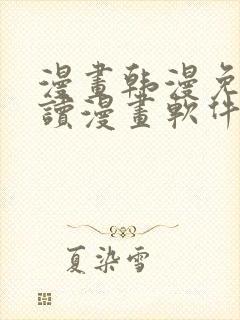 漫畫韩漫免
讀漫畫軟件
夏染雪